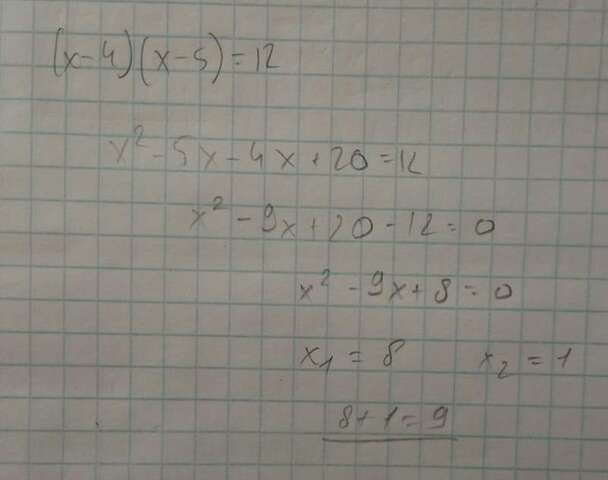 (x-4)(x-5)=12
x²-5x-4x+20=12
x²-9x+20-12=0
x²-9x+8=0
x₁=8 x₂=1
8+1=9